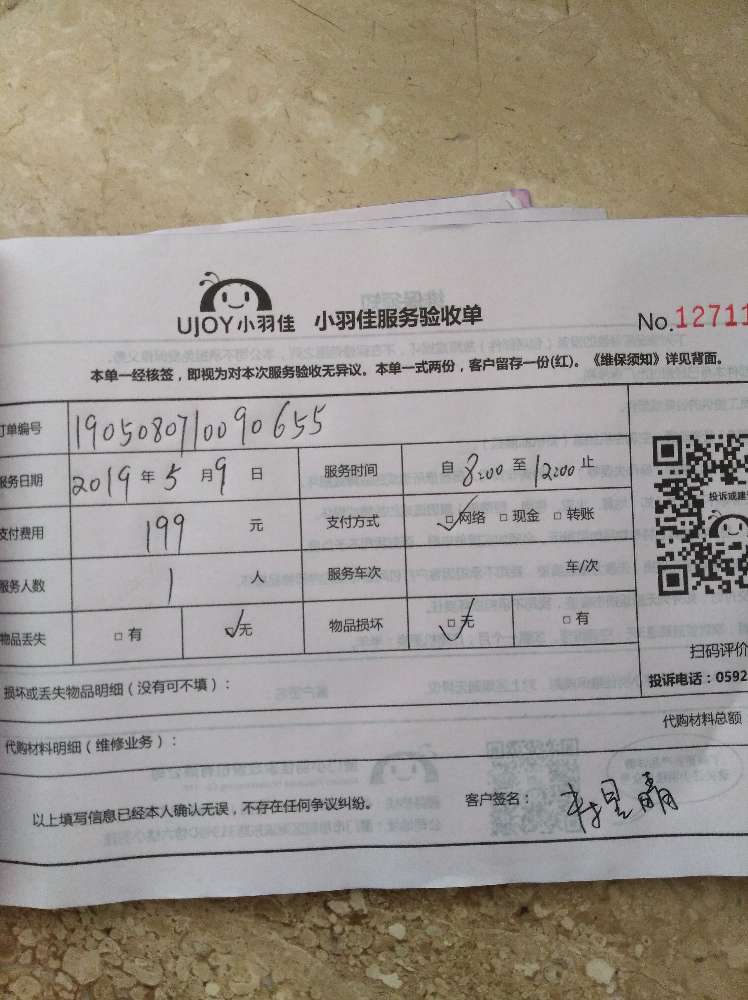 UJOY小羽佳 小羽佳服务验收单
No.12711
本单一经核签，即视为对本次服务验收无异议。本单一式两份，客户留存一份(红)。《维保须知》详见背面。
订单编号 1905080710090655
服务日期 2019 年 5 月 9 日 服务时间 自 8:00 至 12:00 止
支付费用 199 元 支付方式 ☑网络 □现金 □转账
服务人数 1 人 服务车次 车/次
物品丢失 □有 ☑无 物品损坏 ☑无 □有
投诉或建
扫码评价
损坏或丢失物品明细（没有可不填）：
投诉电话：0592
代购材料明细（维修业务）：
代购材料总额
以上填写信息已经本人确认无误，不存在任何争议纠纷。 客户签名：